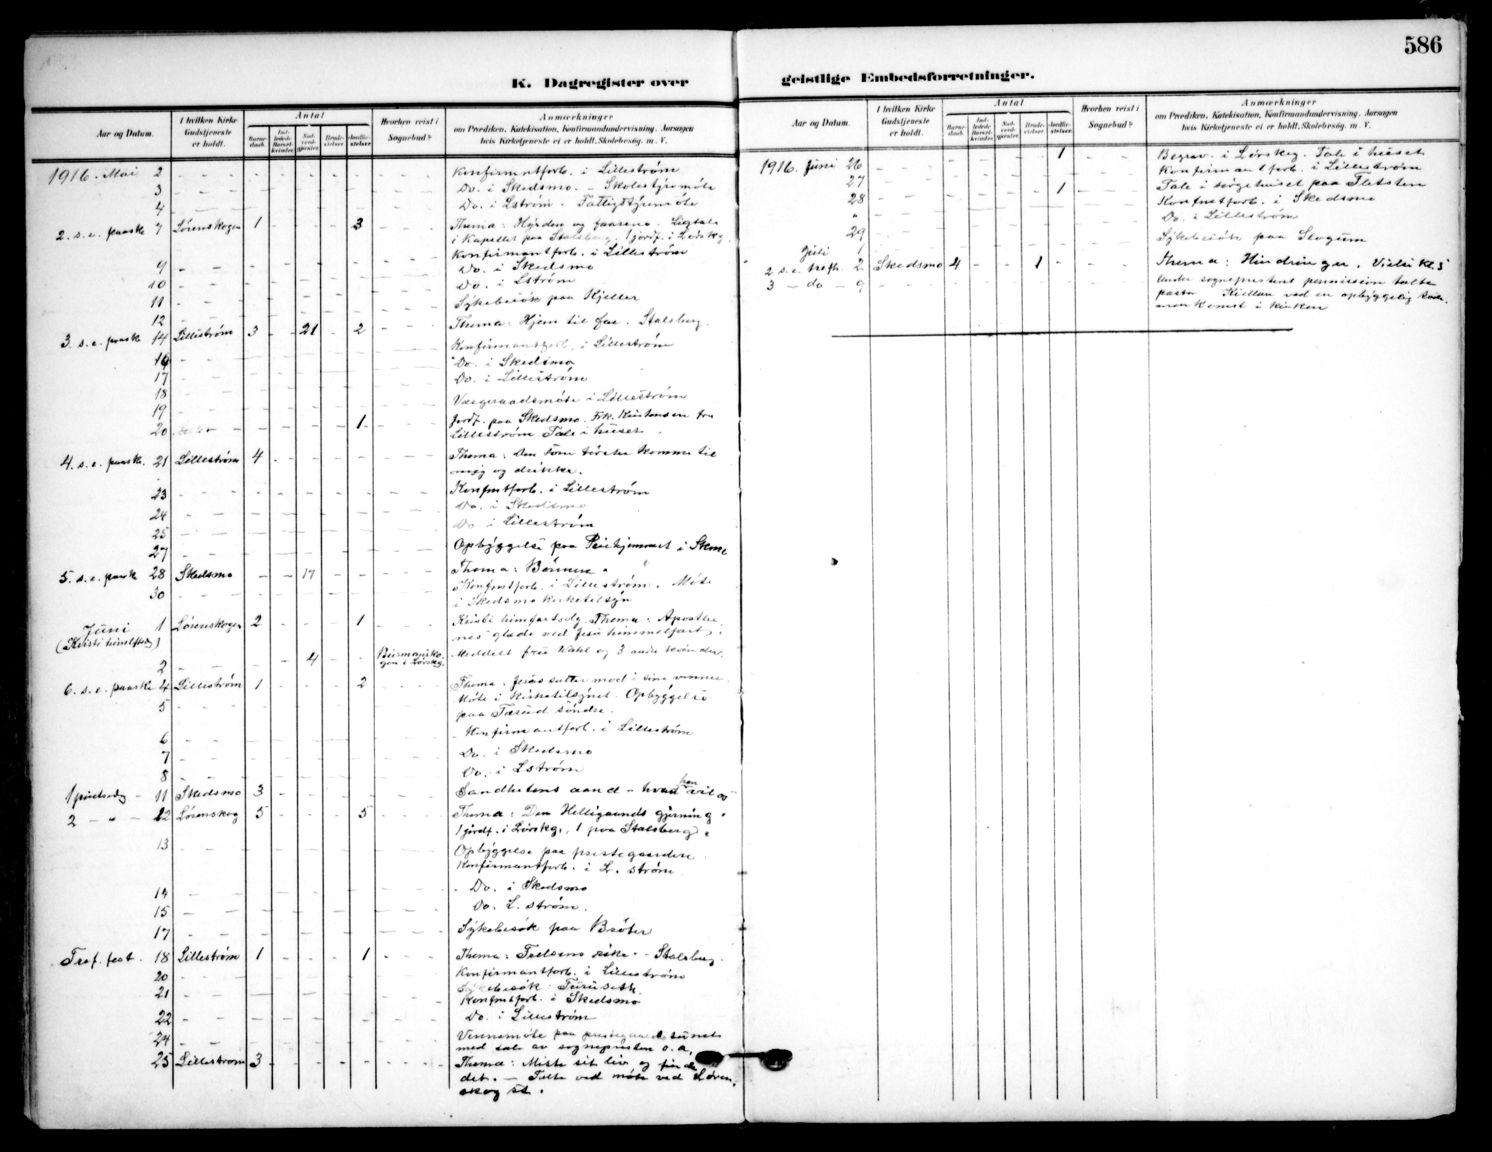 586
K. Dagregister over geistlige Embedsforretninger.
Aar og Datum.
I hvilken Kirke Gudstjeneste er holdt.
Antal
Barnedaab.
Indledede Barselkvinder.
Nadverdgjester.
Brudevielser.
Jordfæstelser.
Hvorhen reist i Sognebud?
Anmærkninger
om Prædiken, Katekisation, Konfirmandundervisning, Aarsagen
hvis Kirketjeneste ei er holdt, Skolebesøg, m. V.
1916. Mai 2 Konfirmantforb. i Lilleström
3 Do. i Skedsmo. - Skolestyremöte
4 Do. i Lström. Fattigstyremöte
2. s. e. paaske 7 Lörenskogen 1 3 Thema: Hyrden og faarene. Ligtale
i Kapellet paa Stalsberg. 1 jordf. i Lörskg.
9 Konfirmantforb. i Lilleström
10 Do. i Skedsmo
11 Do. i Lström
12 Sykebesök paa Kjeller
3. s. e. paask. 14 Lilleström 3 21 2 Thema: Hjem til far. Stalsberg.
16 Konfirmantforb. i Lilleström
17 Do. i Skedsmo
18 Do. i Lilleström
19 Vergeraadsmöte i Lilleström
20 1 Jordf. paa Skedsmo. Frk. Kristensen fra
Lilleström Tale i huset.
4. s. e. paaske. 21 Lilleström 4 Thema: Den som törster komme til
mig og drikke.
23 Konfmtforb. i Lilleström
24 Do. i Skedsmo
25 Do. i Lilleström
27 Opbyggelse paa Pleiehjemmet i
5. s. e. paask 28 Skedsmo 17 Thema: Bönnen.
30 Konfmtforb. i Lilleström. Möte
i Skedsmo kirketilsyn
Juni 1 Lörenskogen 2 1 Kristi himfartsdg. Thema: Apostle-
(Kristi himlftdg) nes glæde ved Jesu himmelfart.
2 4 Meddelt fru Wahl og 3 andre kvinder.
6. s. e. paaske 4 Lilleström 1 2 Thema. Jesus sætter mod i sine venner.
5 Möte i kirketilsynet. Opbyggelse
paa söndre.
6 Konfirmantforb. i Lilleström
7 Do. i Skedsmo
8 Do. i Lström
1 pinsedg - 11 Skedsmo 3 Sandhetens aand - hvad han vil os
2 - " - 12 Lörenskog 5 5 Thema: Den Helligaands gjerning
1 jordf. i Lörskg., 1 paa Stalsberg.
13 Opbyggelse paa prestegaarden.
Konfirmantforb. i L. ström
14 Do. i Skedsmo
15 Do. L. ström.
17 Sykebesök paa Bröter
Tref. fest. 18 Lilleström 1 1 Thema: Frelsens rike. - Stalsberg.
20 Konfirmantforb. i Lilleström
21 Sykebesök: Furuseth.
Konfmtforb. i Skedsmo
22 Do. i Lilleström
24 Vennemöte paa prestegaardstunet
med tale av sognepresten o. a.
25 Lilleström 3 Thema: Miste sit liv og finde
det. - Tale ved möte ved Lören-
skog st.
1916. Juni 26 1 Begrav. i Lörskog. Tale i huset
27 Konfirmantforb. i Lilleström
1 Tale i sörgehuset paa Fletsten
28 Konfmtforb. i Skedsmo
" Do. i Lilleström
29 Sykebesök paa Slogum
Juli 1
2 s. e. trefh. 2 Skedsmo 4 1 Thema: Hindringer. Vielse kl. 5
3 - do - 9 Under sogneprestens permission talte
pastor Kiellan ved en opbyggelig sam-
menkomst i kirken